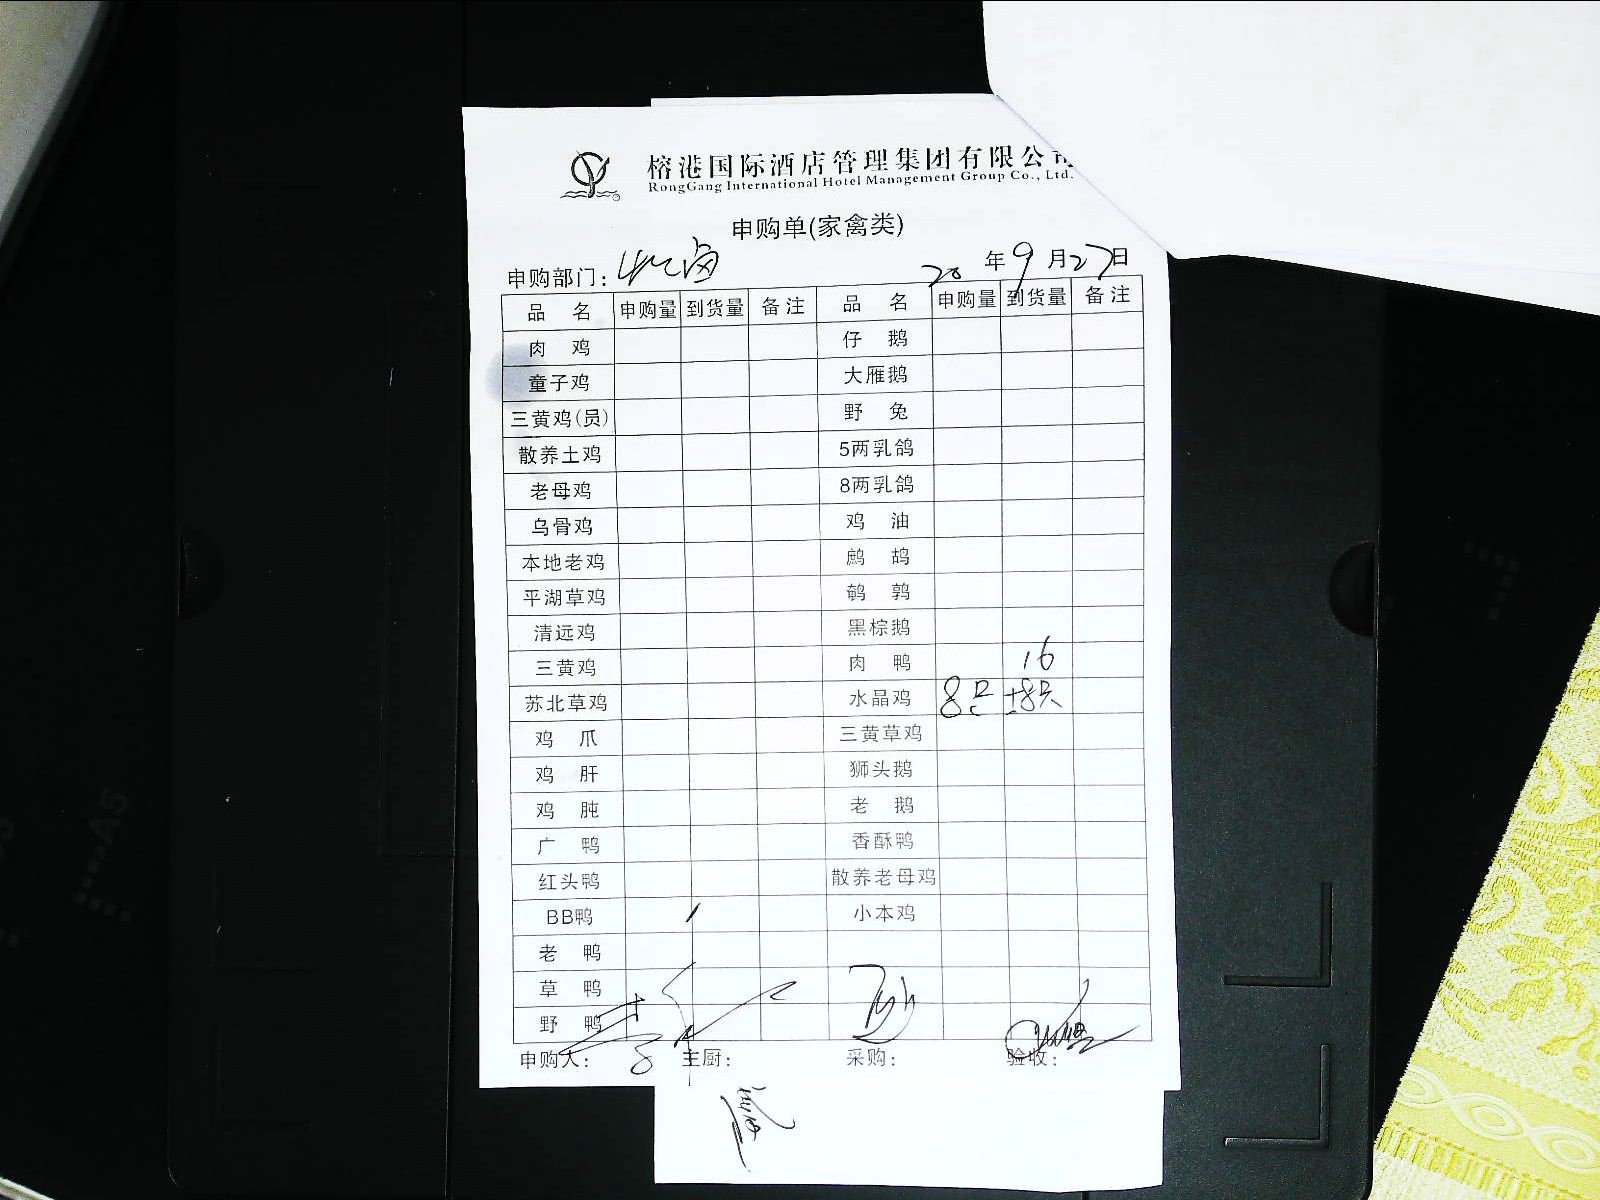 榕港国际酒店管理集团有限公司
RongGang International Hotel Management Group Co., Ltd.
申购单(家禽类)
申购部门: 20 年 9 月 27 日
品 名 申购量 到货量 备注 品 名 申购量 到货量 备注
肉 鸡 仔 鹅
童子鸡 大雁鹅
三黄鸡(员) 野 兔
散养土鸡 5两乳鸽
老母鸡 8两乳鸽
乌骨鸡 鸡 油
本地老鸡 鹧 鸪
平湖草鸡 鹌 鹑
清远鸡 黑棕鹅
三黄鸡 肉 鸭 16
苏北草鸡 水晶鸡 8只 ±8只
鸡 爪 三黄草鸡
鸡 肝 狮头鹅
鸡 肫 老 鹅
广 鸭 香酥鸭
红头鸭 散养老母鸡
BB鸭 小本鸡
老 鸭
草 鸭
野 鸭
申购人: 主厨: 采购: 验收: